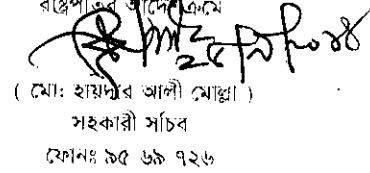 রাষ্ট্রপতির আদেশক্রমে
২৫
২০১৪
( মো: হায়দার আলী মোল্লা )
সহকারী সচিব
ফোনঃ ৯৫ ৬৯ ৭২৬